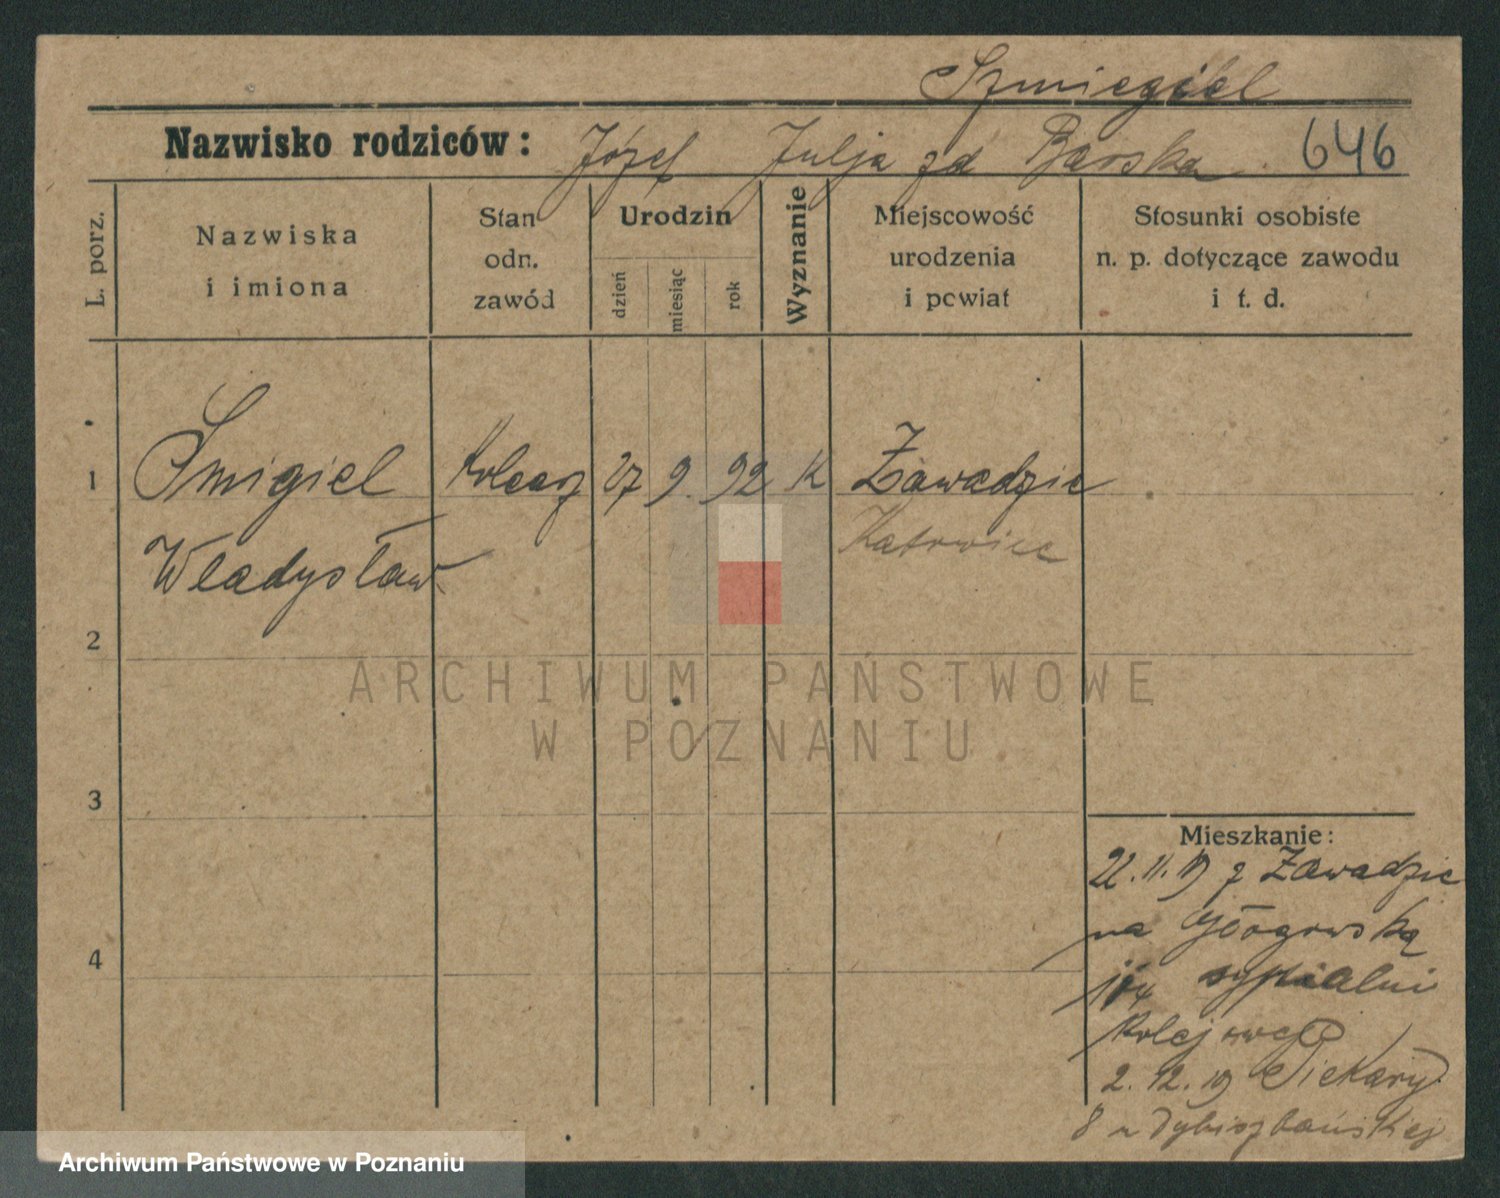 Szmiegiel
Nazwisko rodziców: Józef Julja zd Barska 646
L. porz.
Nazwiska
i imiona
Stan
odn.
zawód
Urodzin
dzień
miesiąc
rok
Wyznanie
Miejscowość
urodzenia
i powiat
Stosunki osobiste
n. p. dotyczące zawodu
i t. d.
1 Śmigiel Kolearz 27 9. 92 K Zawadzie
Władysław Katowice
2
ARCHIWUM PAŃSTWOWE
W POZNANIU
3
Mieszkanie:
22.11.19 z Zawadzie
na Głogowską
104 sypialni
Kolejowe
4
2.12.19 Piekary
8 u Dybizbańskiej
Archiwum Państwowe w Poznaniu